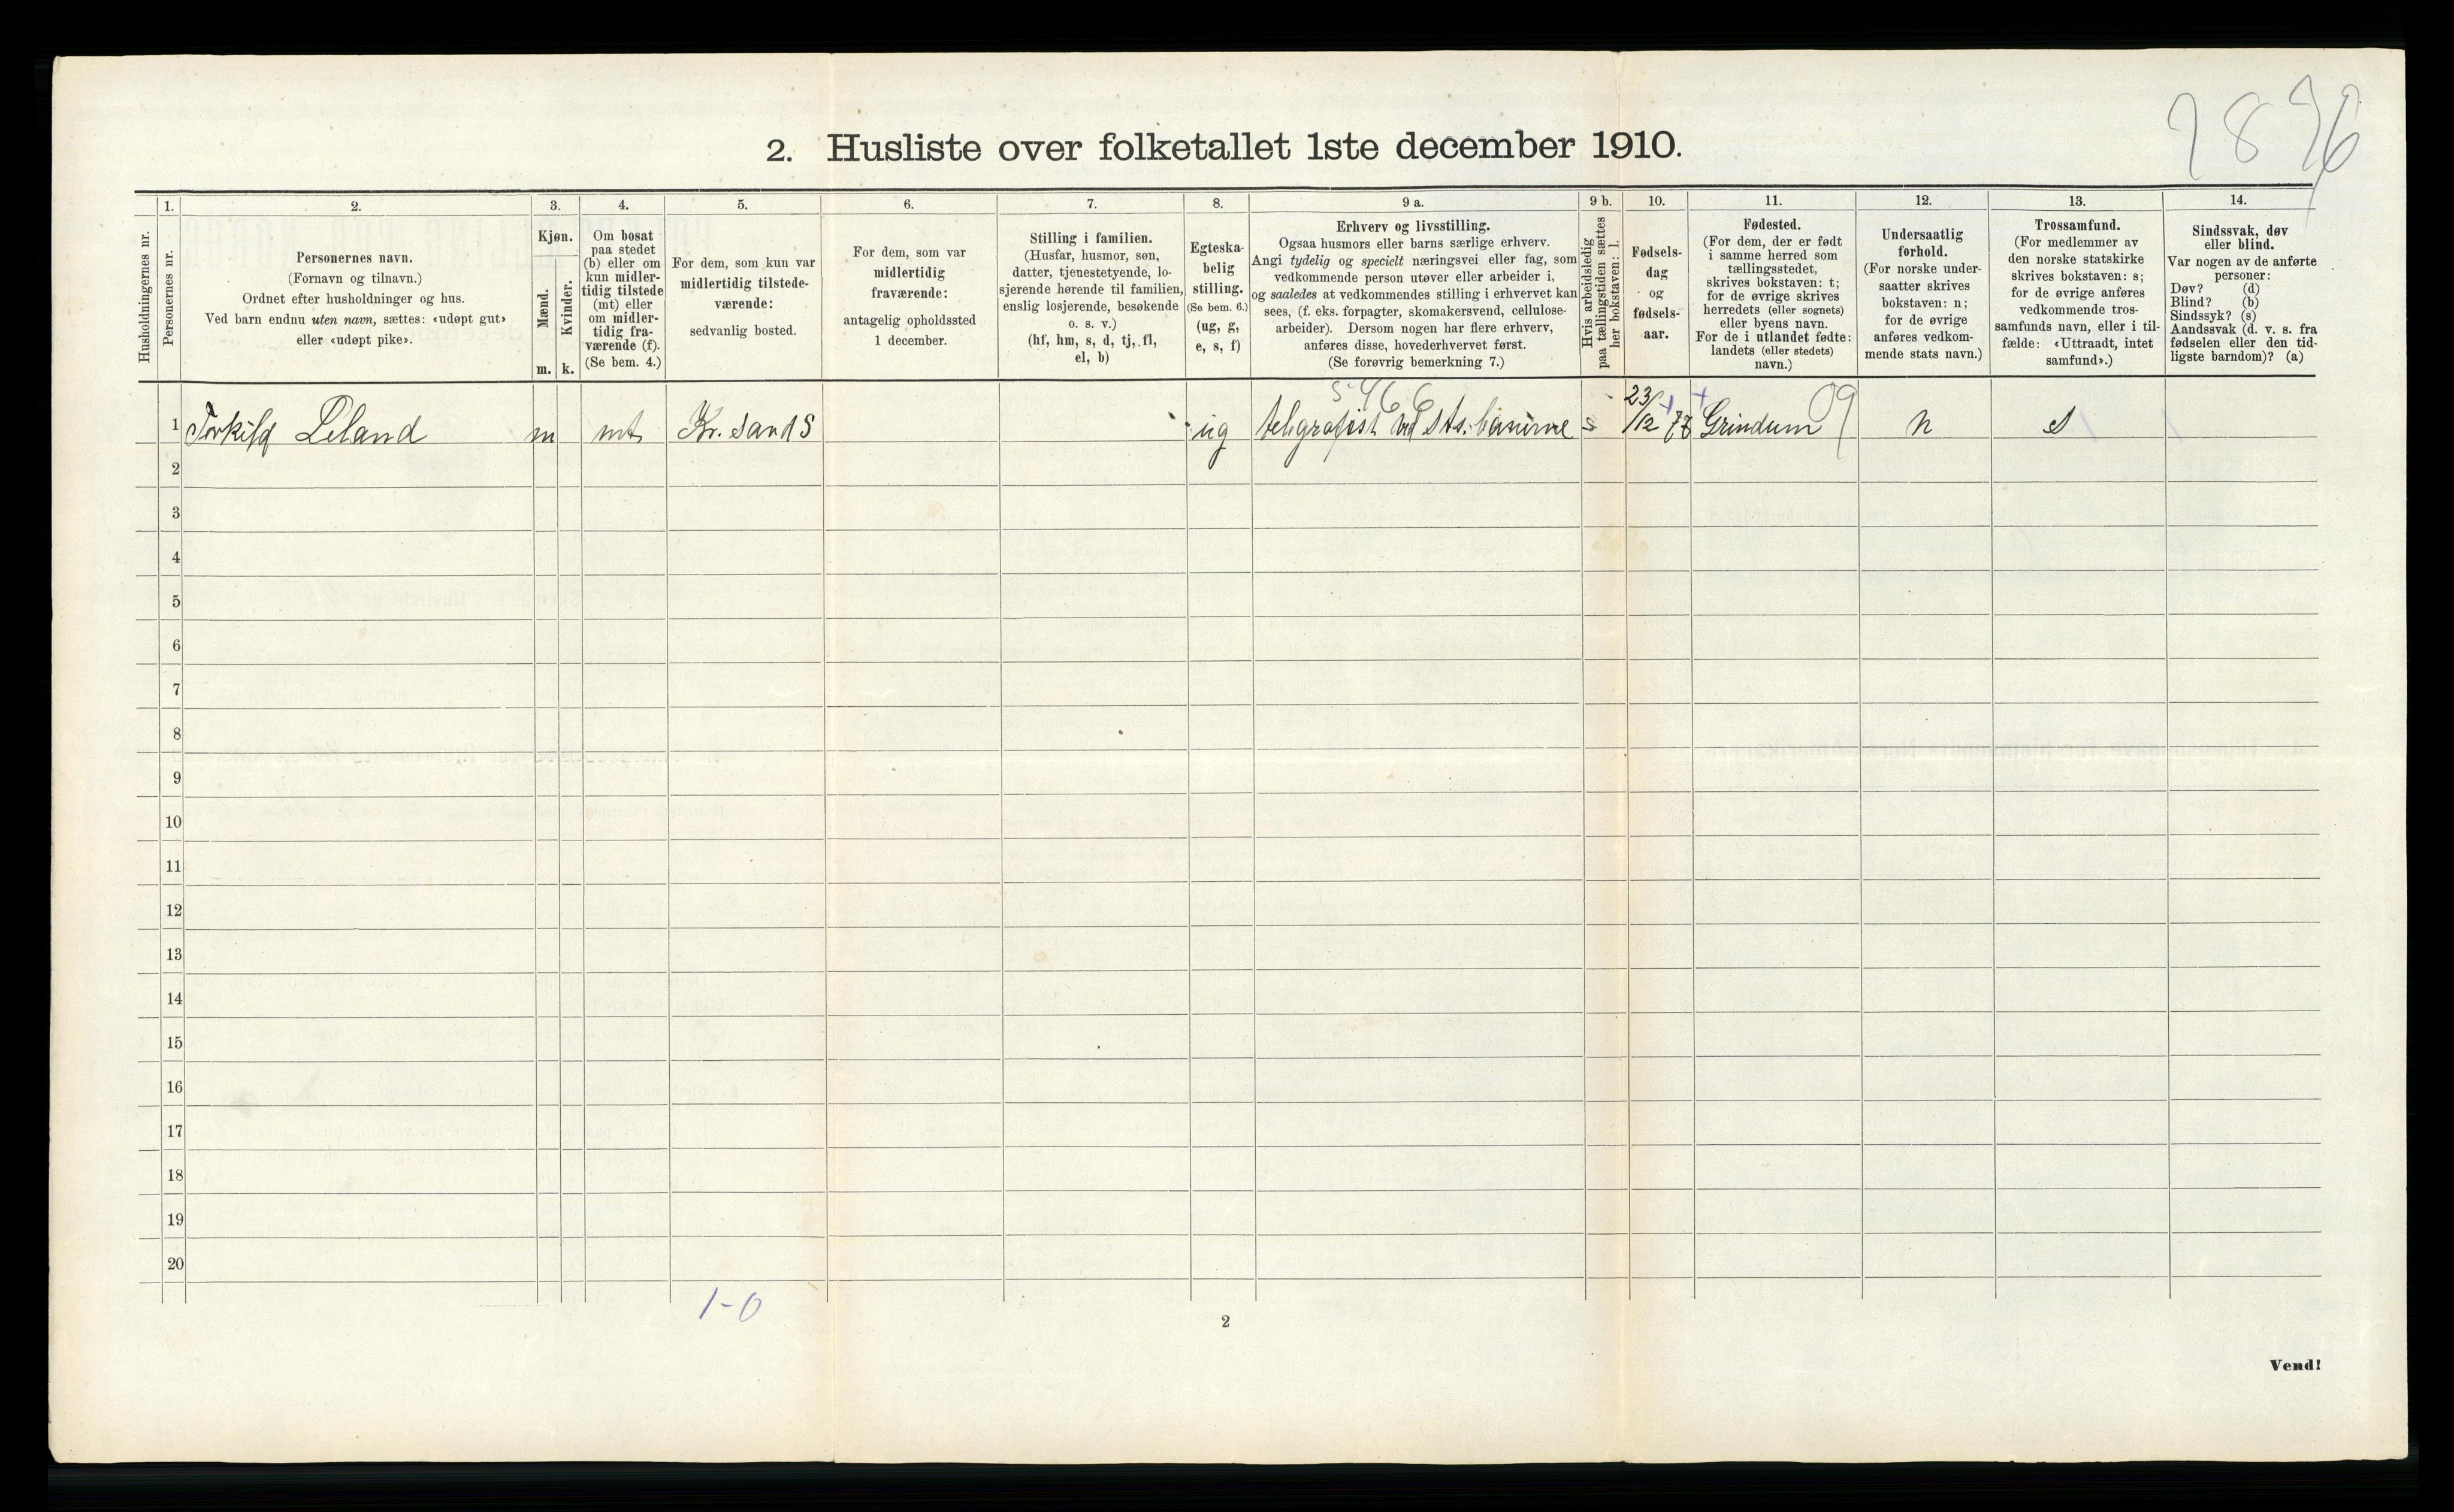 7876
2. Husliste over folketallet 1ste december 1910.
Husholdningernes nr.
1.
Personernes nr.
2.
Personernes navn.
(Fornavn og tilnavn.)
Ordnet efter husholdninger og hus.
Ved barn endnu uten navn, sættes: «udøpt gut»
eller «udøpt pike».
3.
Kjøn.
Mænd.
m.
Kvinder.
k.
4.
Om bosat
paa stedet
(b) eller om
kun midler-
tidig tilstede
(mt) eller
om midler-
tidig fra-
værende (f).
(Se bem. 4.)
5.
For dem, som kun var
midlertidig tilstede-
værende:
sedvanlig bosted.
6.
For dem, som var
midlertidig
fraværende:
antagelig opholdssted
1 december.
7.
Stilling i familien.
(Husfar, husmor, søn,
datter, tjenestetyende, lo-
sjerende hørende til familien,
enslig losjerende, besøkende
o. s. v.)
(hf, hm, s, d, tj, fl,
el, b)
8.
Egteska-
belig
stilling.
(Se bem. 6.)
(ug, g,
e, s, f)
9 a.
Erhverv og livsstilling.
Ogsaa husmors eller barns særlige erhverv.
Angi tydelig og specielt næringsvei eller fag, som
vedkommende person utøver eller arbeider i,
og saaledes at vedkommendes stilling i erhvervet kan
sees, (f. eks. forpagter, skomakersvend, cellulose-
arbeider). Dersom nogen har flere erhverv,
anføres disse, hovederhvervet først.
(Se forøvrig bemerkning 7.)
9 b.
Hvis arbeidsledig
paa tællingstiden sættes
her bokstaven: l.
10.
Fødsels-
dag
og
fødsels-
aar.
11.
Fødested.
(For dem, der er født
i samme herred som
tællingsstedet,
skrives bokstaven: t;
for de øvrige skrives
herredets (eller sognets)
eller byens navn.
For de i utlandet fødte:
landets (eller stedets)
navn.)
12.
Undersaatlig
forhold.
(For norske under-
saatter skrives
bokstaven: n;
for de øvrige
anføres vedkom-
mende stats navn.)
13.
Trossamfund.
(For medlemmer av
den norske statskirke
skrives bokstaven: s;
for de øvrige anføres
vedkommende tros-
samfunds navn, eller i til-
fælde: «Uttraadt, intet
samfund».)
14.
Sindssvak, døv
eller blind.
Var nogen av de anførte
personer:
Døv? (d)
Blind? (b)
Sindssyk? (s)
Aandssvak (d. v. s. fra
fødselen eller den tid-
ligste barndom)? (a)
5466
1 Torkild Leland m mt Kr. sand S ug telegrafist ved sts. banerne 23/12 Grindum 09 n s
2
3
4
5
6
7
8
9
10
11
12
13
14
15
16
17
18
19
20
1-0
2
Vend!